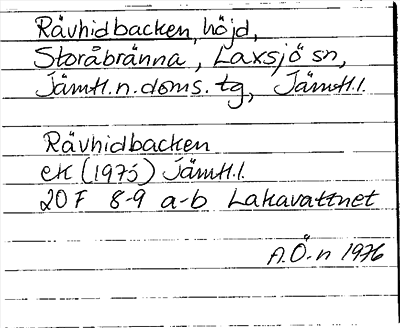 Rävhidbacken, höjd,
Storåbränna, Laxsjö sn,
Jämtl.n.doms.tg, Jämtl.l.
Rävhidbacken
ek (1975) Jämtl.l.
20F 8-9 a-b Lakavattnet
A.Ö-n 1976